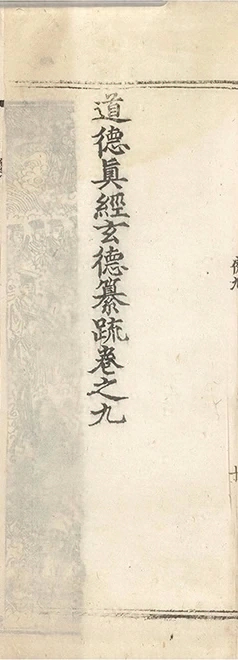 道德眞經玄德纂疏卷之九